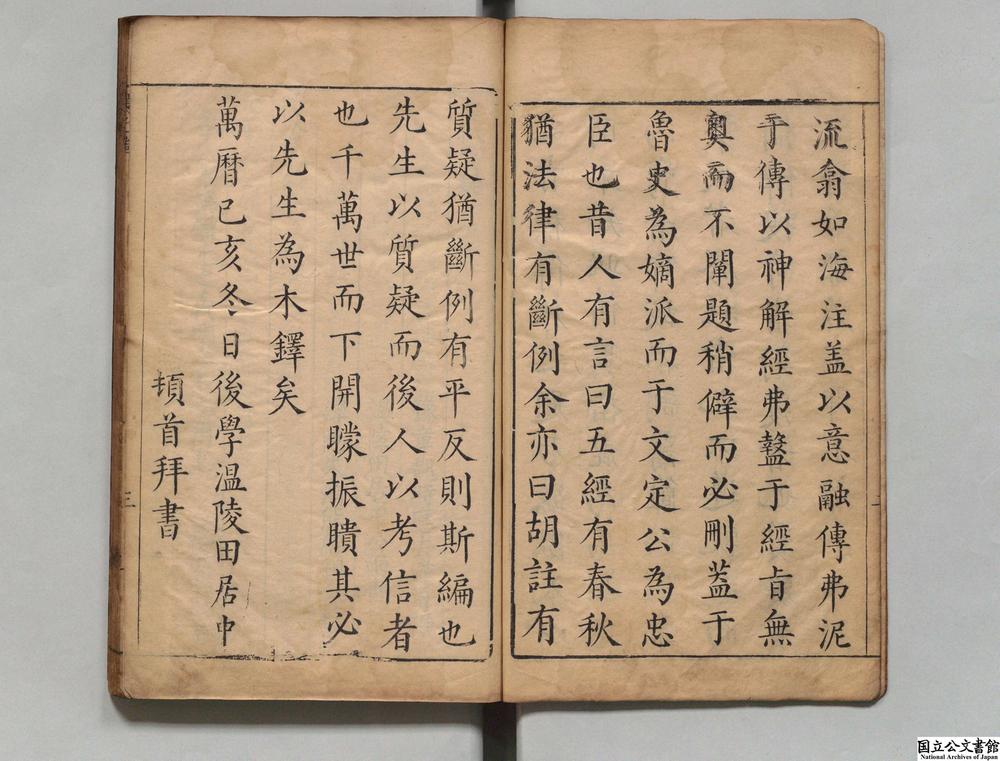 流翕如海注盖以意融傳弗泥
于傳以神解經弗盭于經旨無
奧而不闡題稍僻而必刪葢于
魯史為嫡派而于文定公為忠
臣也昔人有言曰五經有春秋
猶法律有斷例余亦曰胡註有
質疑猶斷例有平反則斯編也
先生以質疑而後人以考信者
也千萬世而下開矇振聵其必
以先生為木鐸矣
萬曆己亥冬日後學溫陵田居中
頓首拜書
三
国立公文書館
National Archives of Japan